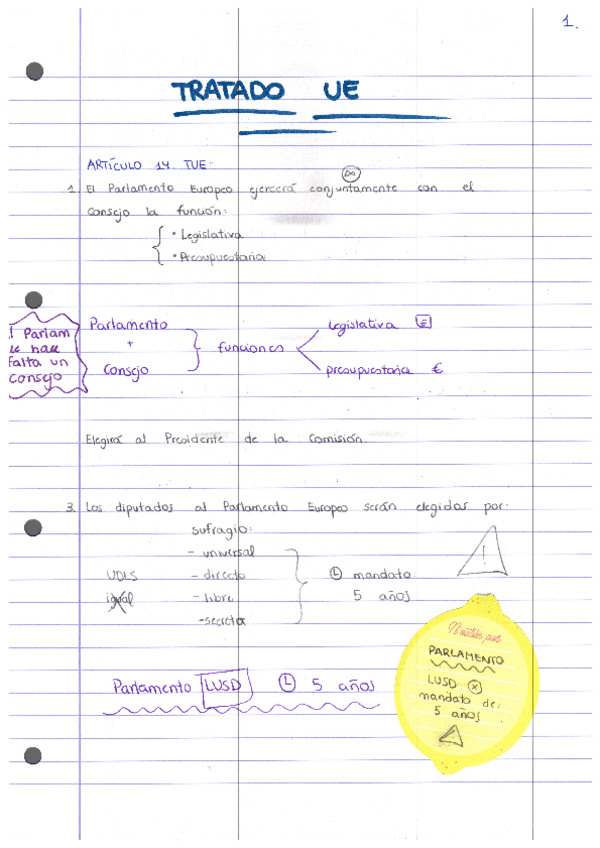 1.
TRATADO UE
ARTÍCULO 14. TUE:
1. El Parlamento Europeo ejercerá conjuntamente con el
Consejo la función:
• Legislativa
• Presupuestaria
Parlam
hace
falta un
consejo
Parlamento
+
Consejo
funciones
legislativa
presupuestaria €
Elegirá al Presidente de la Comisión.
3. Los diputados al Parlamento Europeo serán elegidos por:
sufragio:
- universal
UDLS - directo
igual - libre
- secreto
mandato
5 años
!
Parlamento LUSD 5 años
PARLAMENTO
LUSD
mandato de:
5 años